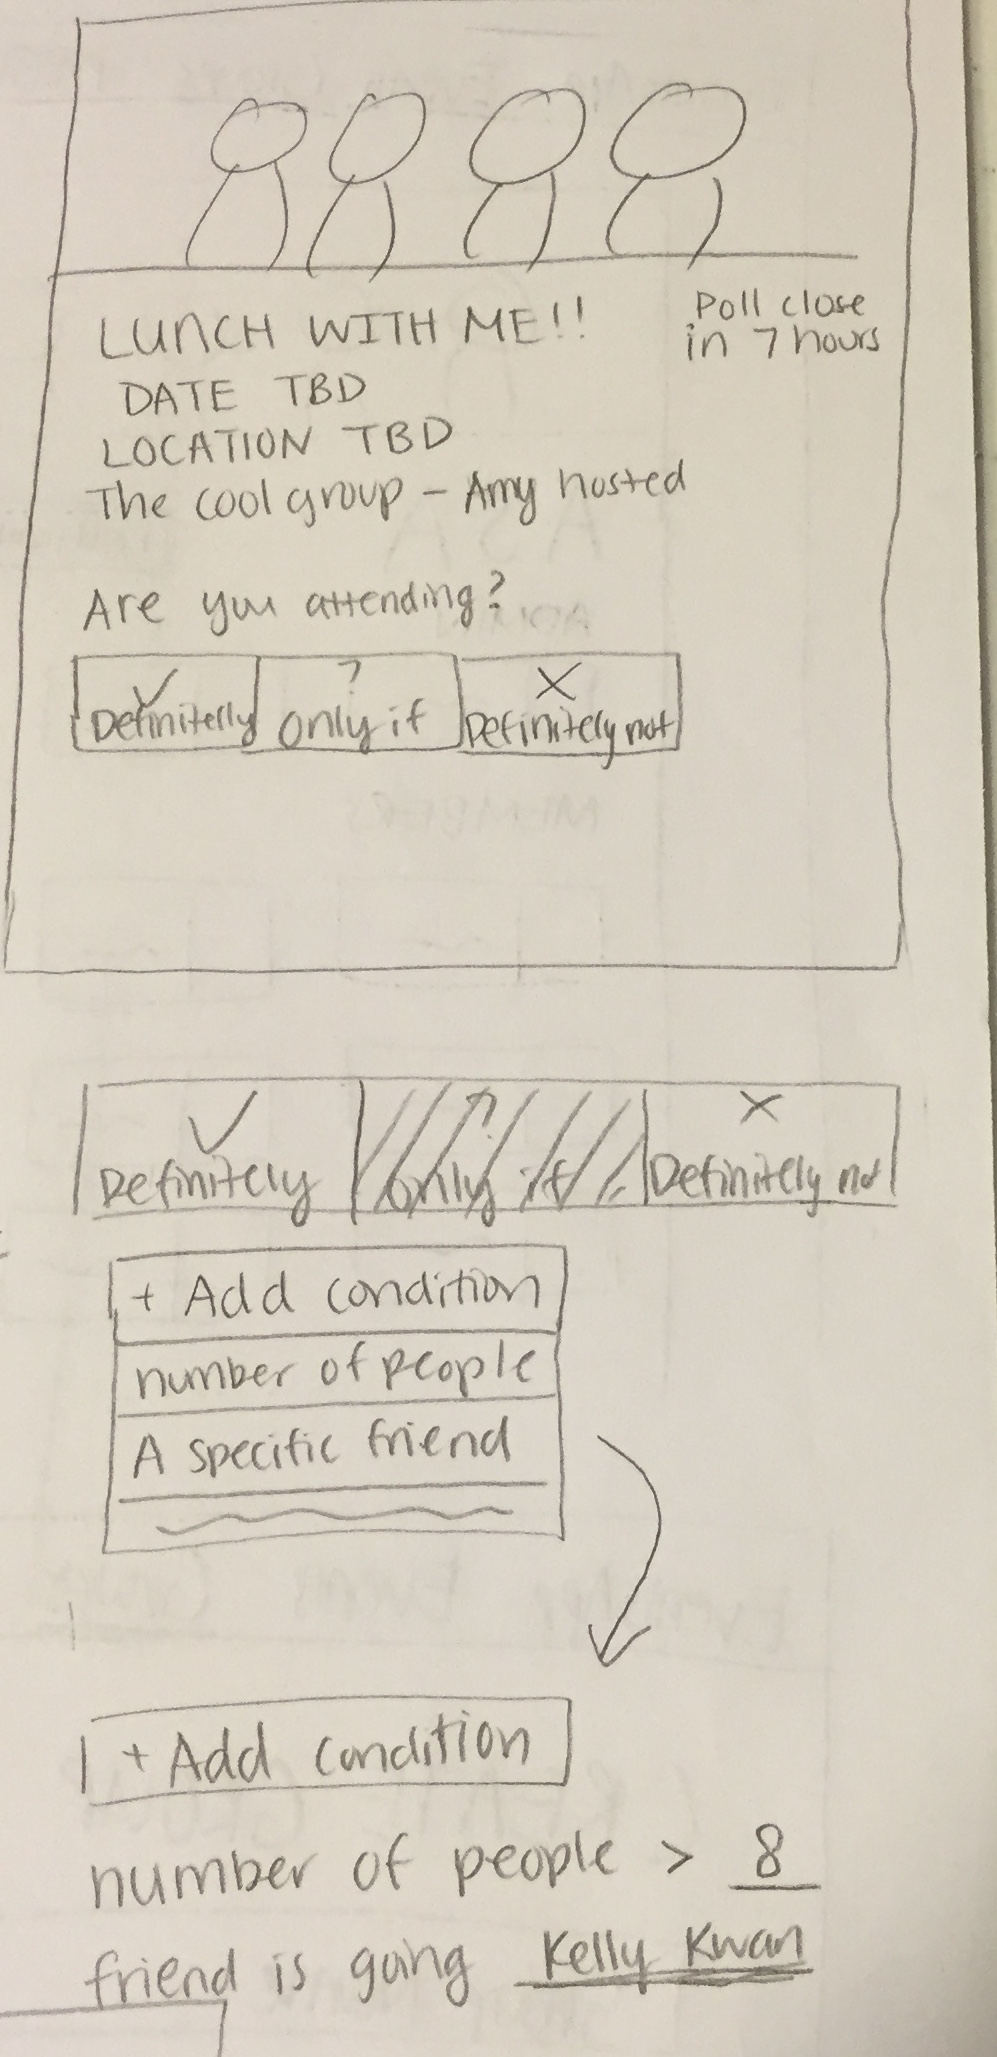 LUNCH WITH ME!!
Poll close
in 7 hours
DATE TBD
LOCATION TBD
The cool group - Amy hosted
Are you attending?
✓ ? X
Definitelly only if Definitely not
✓ ? X
Definitely only if Definitely not
+ Add condition
number of people
A specific friend
+ Add condition
number of people > 8
friend is going Kelly Kwan